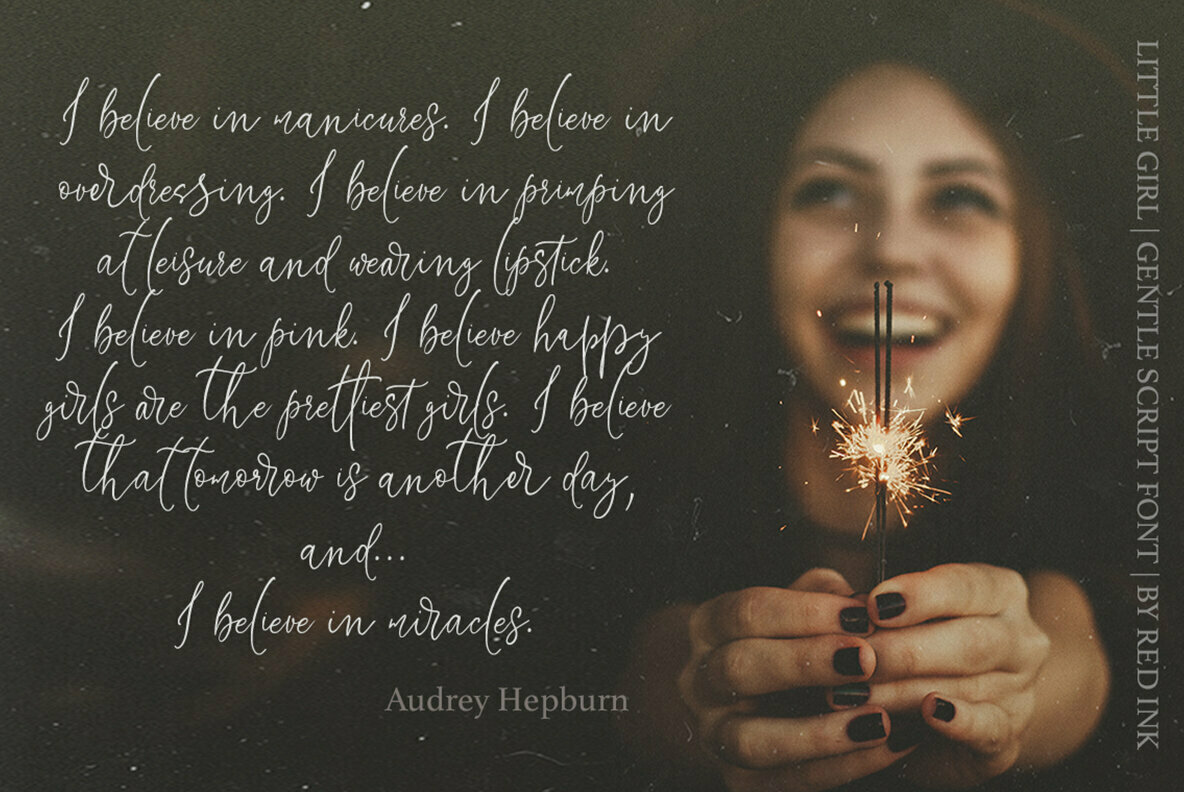 I believe in manicures. I believe in
overdressing. I believe in primping
at leisure and wearing lipstick.
I believe in pink. I believe happy
girls are the prettiest girls. I believe
that tomorrow is another day,
and...
I believe in miracles.
Audrey Hepburn
LITTLE GIRL | GENTLE SCRIPT FONT | BY RED INK